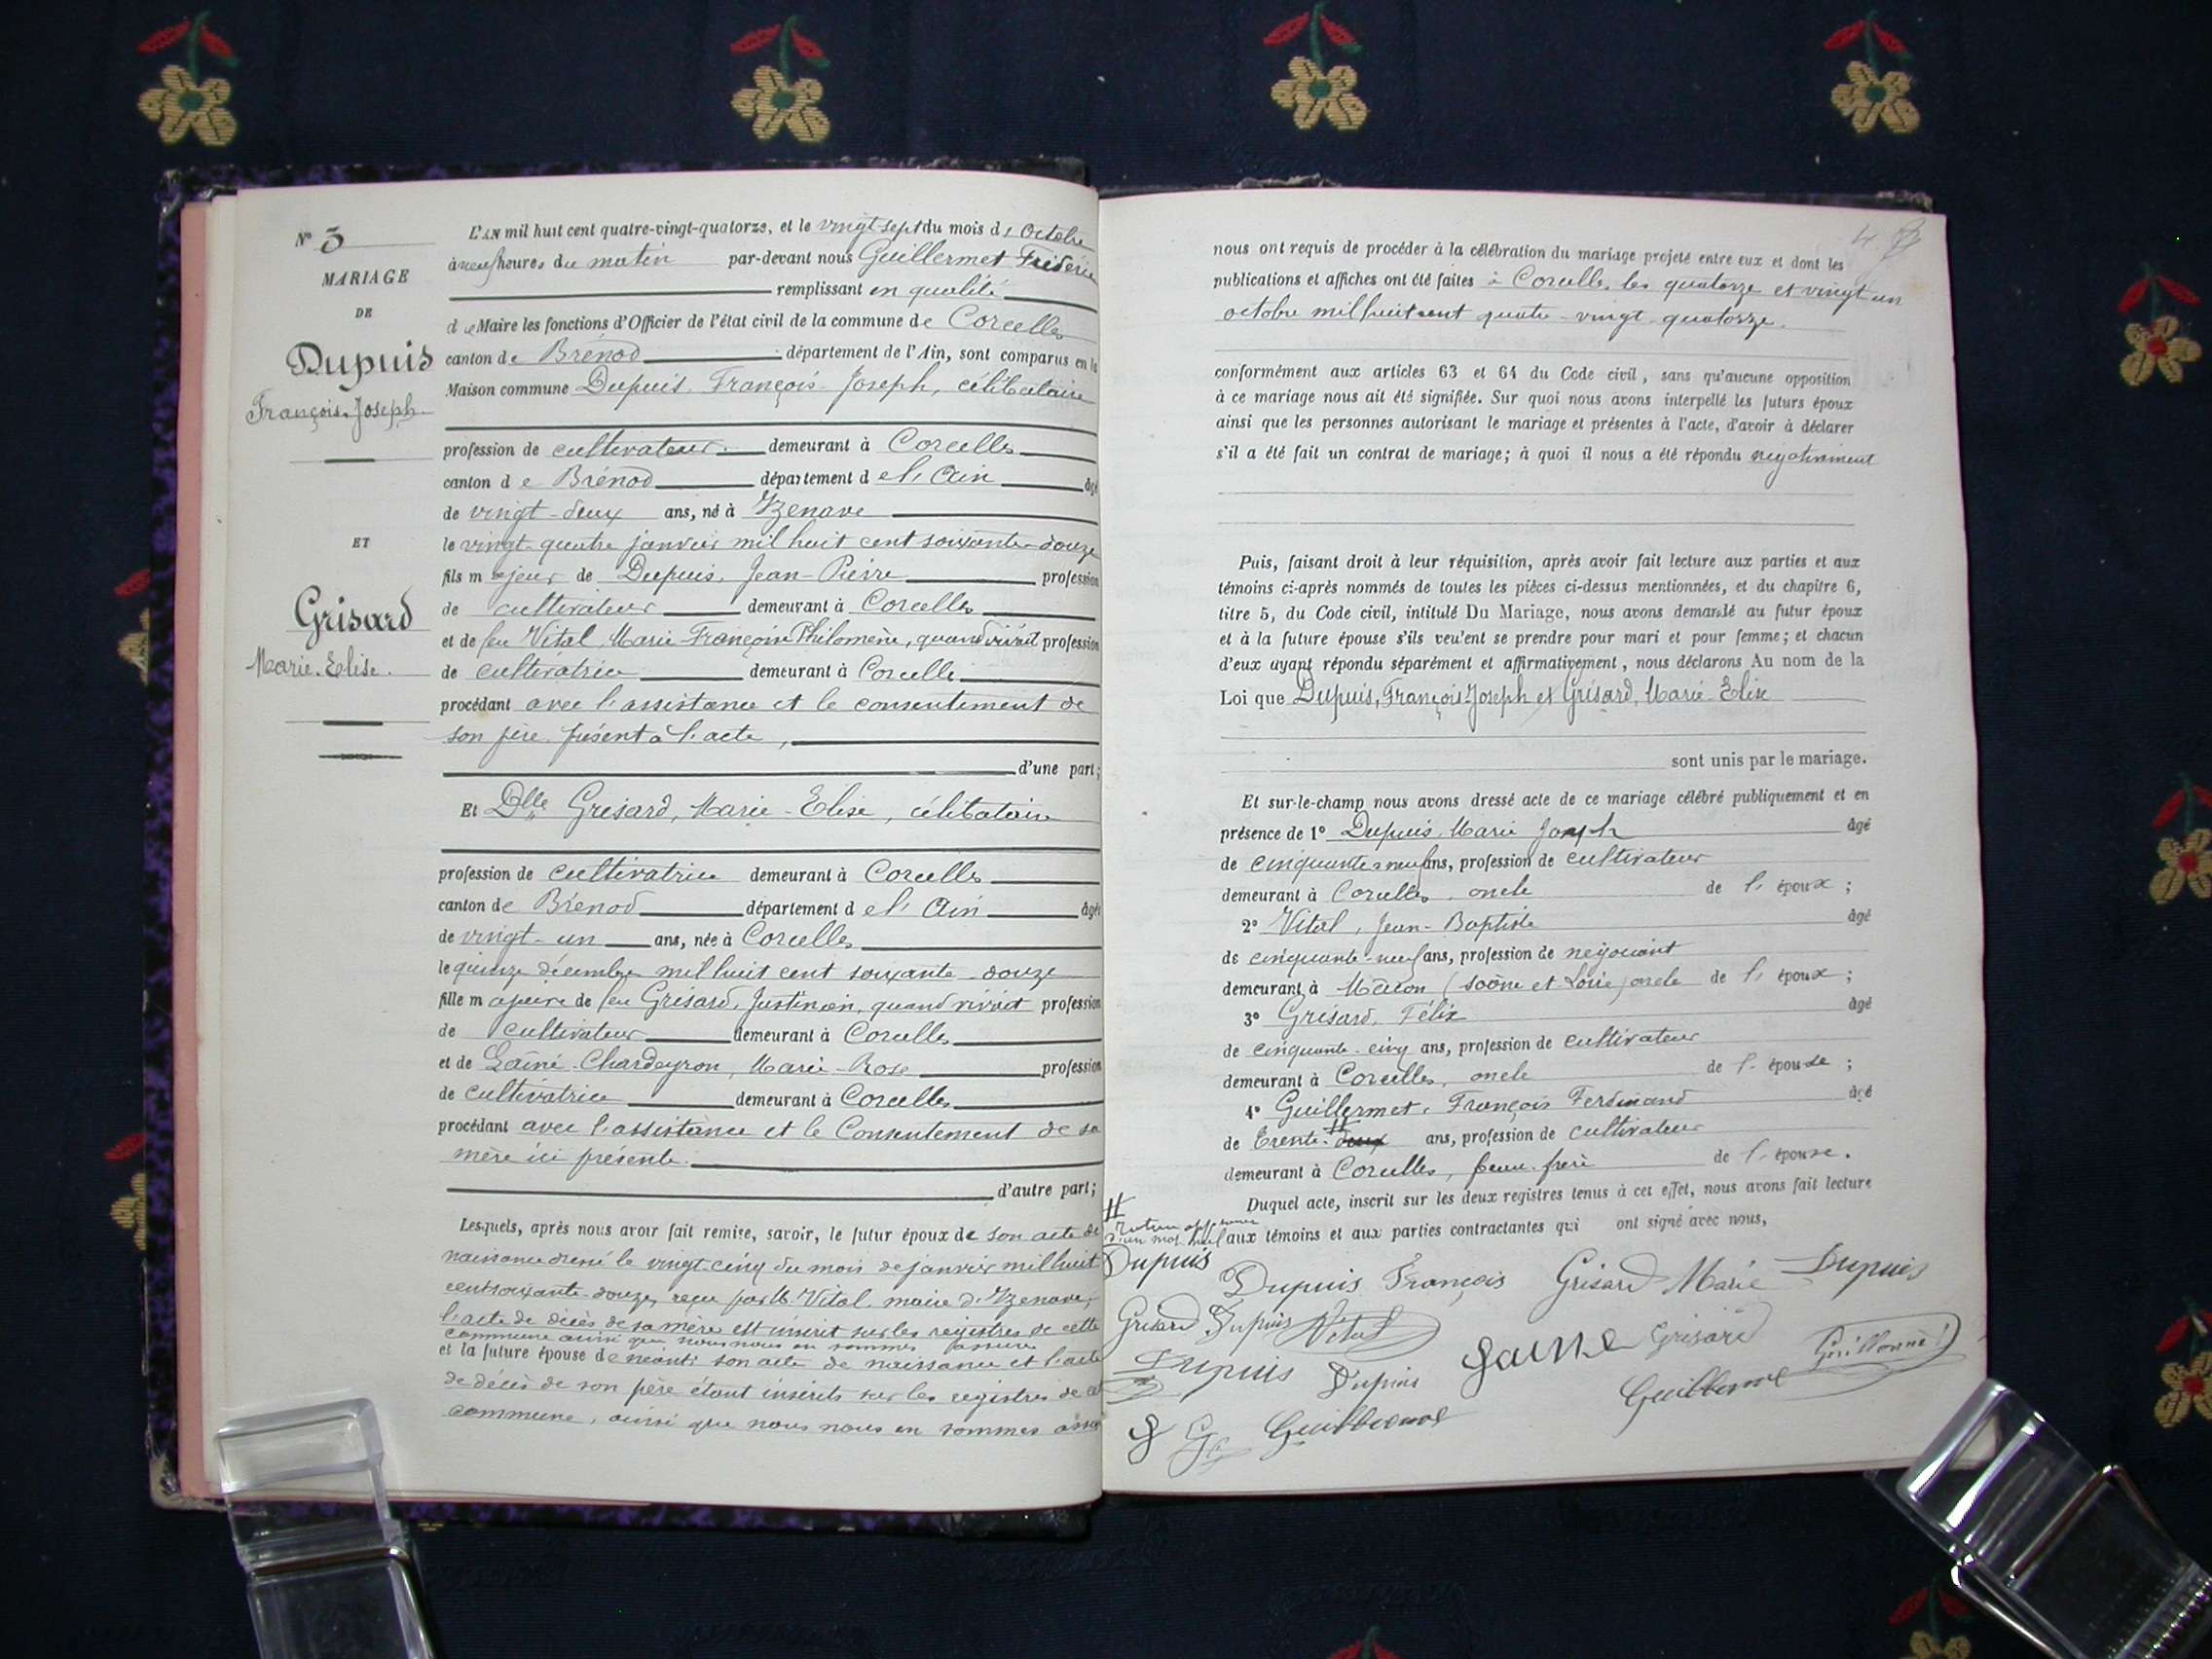 N° 3
MARIAGE
DE
Dupuis
François-Joseph
ET
Grisard
Marie-Elise.
L'AN mil huit cent quatre-vingt-quatorze, et le vingt-sept du mois d' Octobre
à neuf heures du matin par-devant nous Guillermet Frédéric
remplissant en qualité
de Maire les fonctions d'Officier de l'état civil de la commune de Corcelles
canton de Brénod département de l'Ain, sont comparus en la
Maison commune Dupuis, François-Joseph, célibataire
profession de cultivateur demeurant à Corcelles
canton de Brénod département de l'Ain âgé
de vingt-deux ans, né à Izenave
le vingt-quatre janvier mil huit cent soixante-douze
fils majeur de Dupuis, Jean-Pierre profession
de cultivateur demeurant à Corcelles
et de feu Vital, Marie-Françoise Philomène, quand vivait profession
de cultivatrice demeurant à Corcelles
procédant avec l'assistance et le consentement de
son père présent à l'acte,
d'une part;
Et Dlle Grisard, Marie-Elise, célibataire
profession de cultivatrice demeurant à Corcelles
canton de Brénod département de l'Ain âgée
de vingt-un ans, née à Corcelles
le quinze décembre mil huit cent soixante-douze
fille majeure de feu Grisard, Justinien, quand vivait profession
de cultivateur demeurant à Corcelles
et de Lainé-Chardeyron, Marie-Rose profession
de cultivatrice demeurant à Corcelles
procédant avec l'assistance et le Consentement de sa
mère ici présente.
d'autre part;
Lesquels, après nous avoir fait remise, savoir, le futur époux de son acte de
naissance dréné le vingt-cinq du mois de janvier mil huit
cent soixante-douze, reçu par M. Vital, maire d'Izenave;
l'acte de décès de sa mère est inscrit sur les registres de cette
commune ainsi que nous nous en sommes assuré
et la future épouse de néant; son acte de naissance et l'acte
de décès de son père étant inscrits sur les registres de la
commune, ainsi que nous nous en sommes assuré
4
nous ont requis de procéder à la célébration du mariage projeté entre eux et dont les
publications et affiches ont été faites à Corcelles, les quatorze et vingt un
octobre mil huit cent quatre-vingt-quatorze.
conformément aux articles 63 et 64 du Code civil, sans qu'aucune opposition
à ce mariage nous ait été signifiée. Sur quoi nous avons interpellé les futurs époux
ainsi que les personnes autorisant le mariage et présentes à l'acte, d'avoir à déclarer
s'il a été fait un contrat de mariage; à quoi il nous a été répondu négativement
Puis, faisant droit à leur réquisition, après avoir fait lecture aux parties et aux
témoins ci-après nommés de toutes les pièces ci-dessus mentionnées, et du chapitre 6,
titre 5, du Code civil, intitulé Du Mariage, nous avons demandé au futur époux
et à la future épouse s'ils veulent se prendre pour mari et pour femme; et chacun
d'eux ayant répondu séparément et affirmativement, nous déclarons Au nom de la
Loi que Dupuis, François-Joseph et Grisard, Marie-Elise
sont unis par le mariage.
Et sur-le-champ nous avons dressé acte de ce mariage célébré publiquement et en
présence de 1° Dupuis, Marie Joseph âgé
de cinquante-neuf ans, profession de cultivateur
demeurant à Corcelles, oncle de l'époux;
2° Vital, Jean-Baptiste âgé
de cinquante-neuf ans, profession de négociant
demeurant à Mâcon (Saône et Loire) oncle de l'époux;
3° Grisard, Félix âgé
de cinquante-cinq ans, profession de cultivateur
demeurant à Corcelles, oncle de l'épouse;
4° Guillermet, François Ferdinand âgé
de trente-deux ans, profession de cultivateur
demeurant à Corcelles, beau-frère de l'épouse.
Duquel acte, inscrit sur les deux registres tenus à cet effet, nous avons fait lecture
aux témoins et aux parties contractantes qui ont signé avec nous,
d'un mot nul
Dupuis
Dupuis François Grisard Marie Dupuis
Grisard Dupuis Vital
Lainé Grisard
Dupuis Dupuis
Guillermet
Guillermet